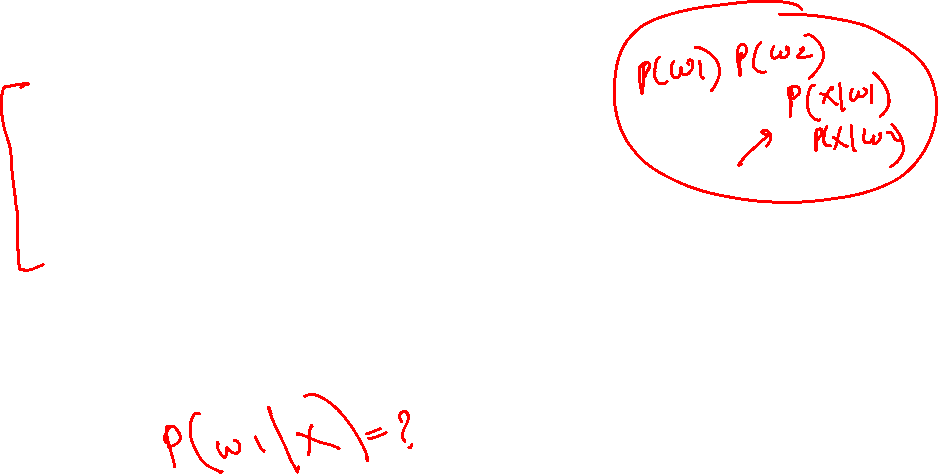 P(ω1) P(ω2)
P(x|ω1)
P(x|ω2)
P(ω1|x)=?